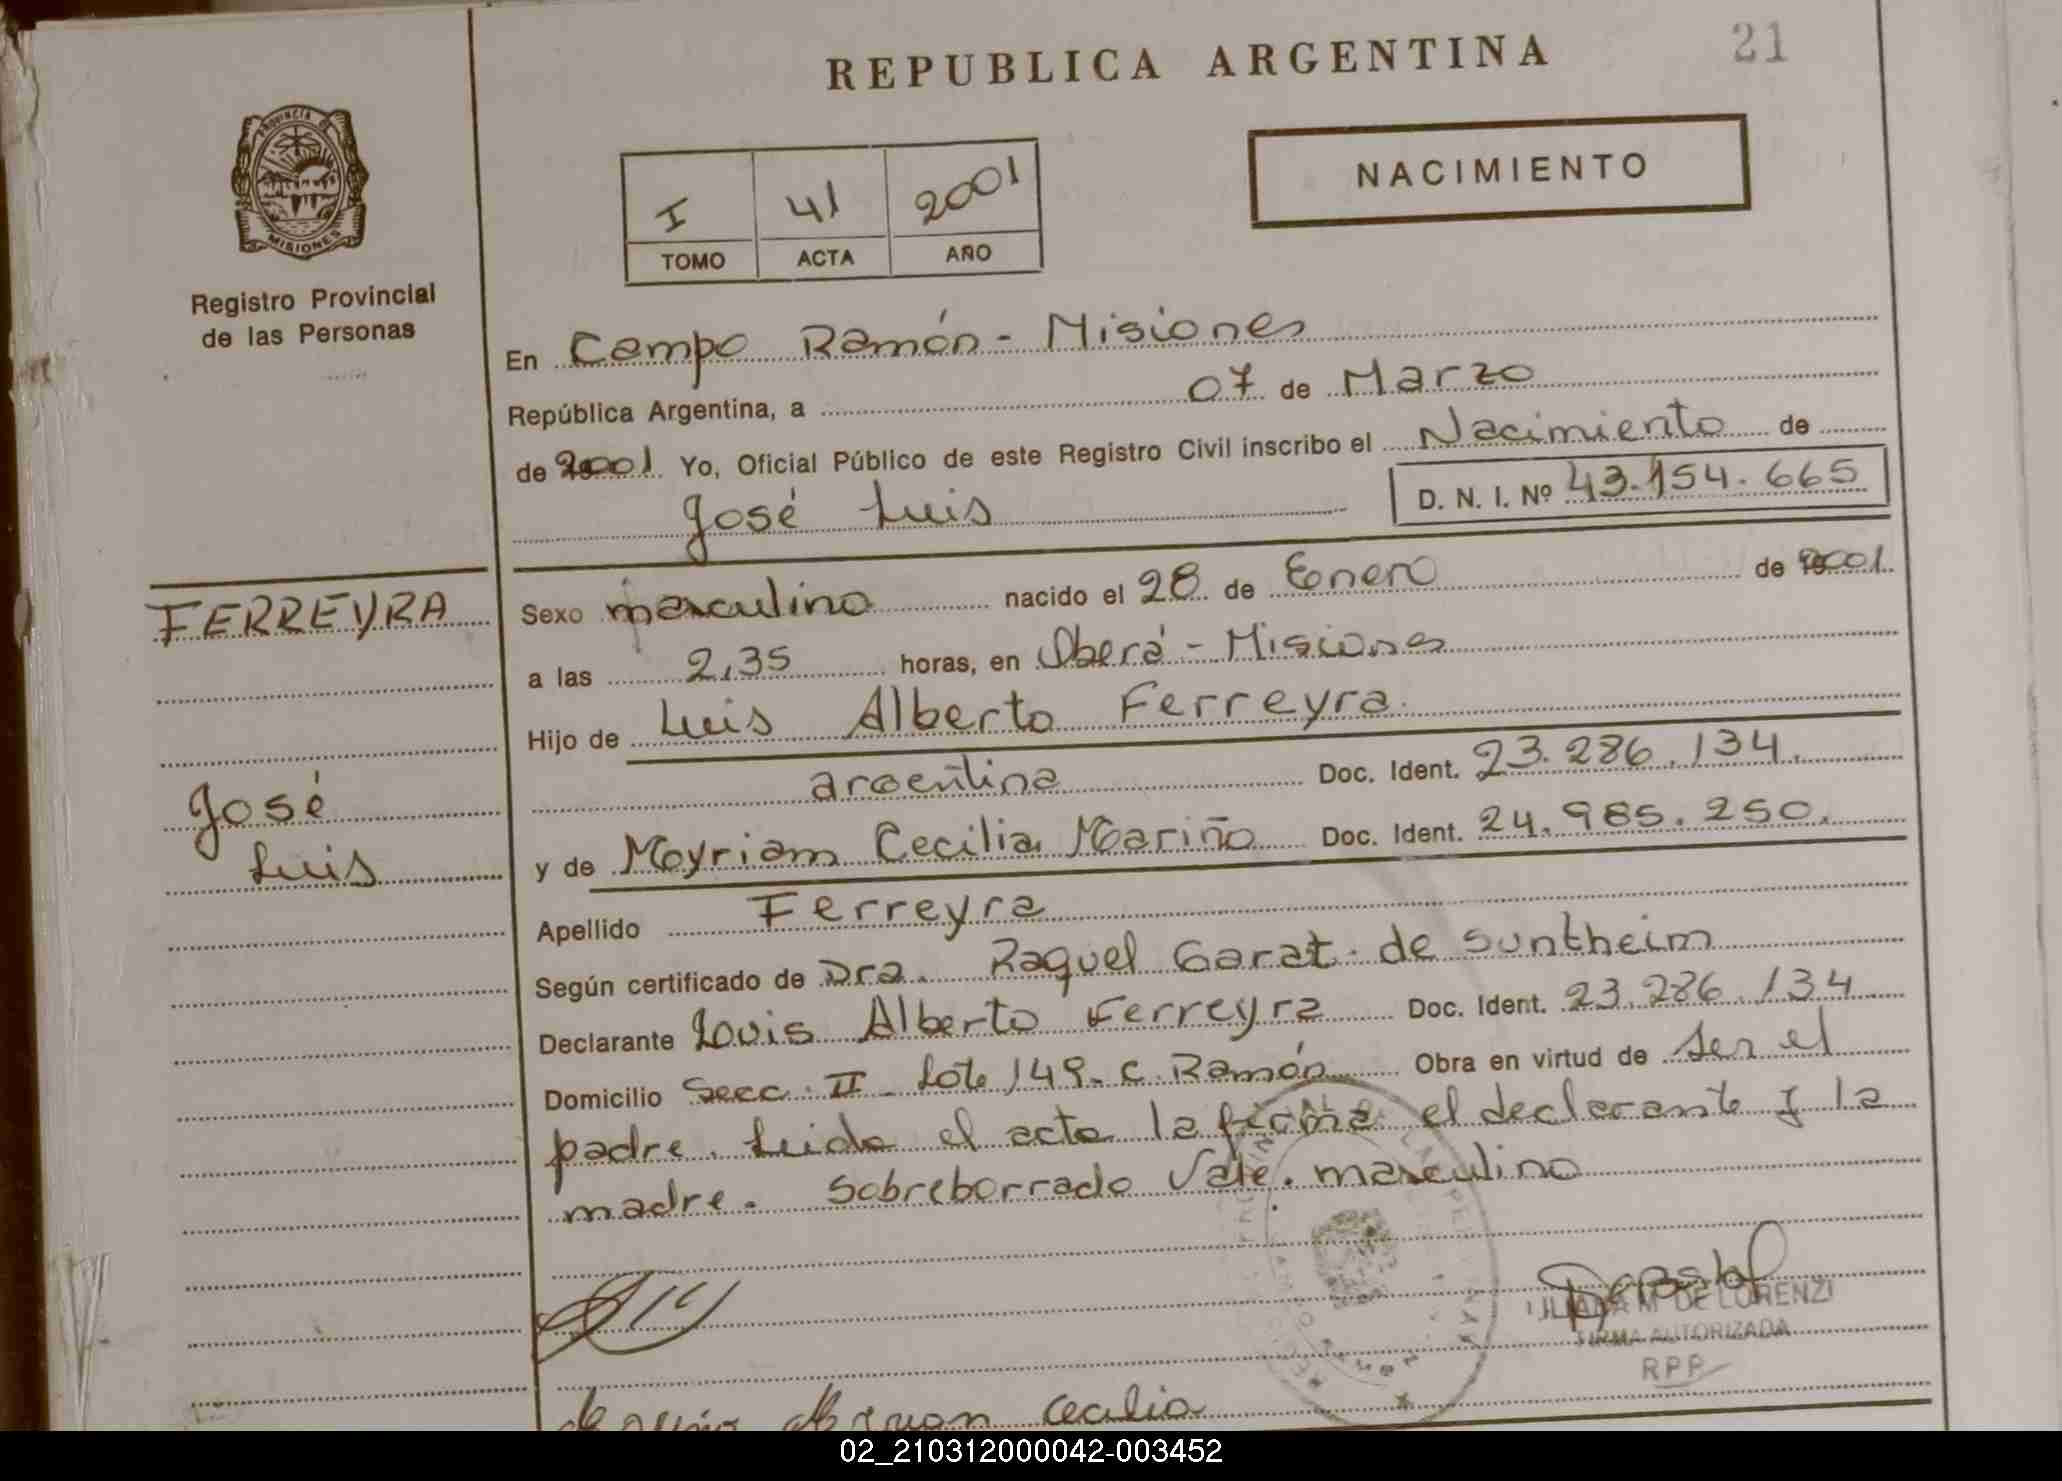 REPUBLICA ARGENTINA
21
PROVINCIA DE
MISIONES
Registro Provincial
de las Personas
I 41 2001
TOMO ACTA AÑO
NACIMIENTO
En Campo Ramón - Misiones
República Argentina, a 07 de Marzo
de 2001 Yo, Oficial Público de este Registro Civil inscribo el Nacimiento de
José Luis
D. N. I. Nº 43.154.665
FERREYRA
José
Luis
Sexo masculino nacido el 28 de Enero de 2001
a las 2,35 horas, en Oberá - Misiones
Hijo de Luis Alberto Ferreyra.
argentina Doc. Ident. 23.286.134.
y de Myriam Cecilia Mariño Doc. Ident. 24.985.250.
Apellido Ferreyra
Según certificado de Dra. Raquel Garat de Suntheim
Declarante Louis Alberto Ferreyra Doc. Ident. 23.286.134
Domicilio Secc. II - Lote 149 - C. Ramón Obra en virtud de Ser el
padre. Leida el acta la firma el declarante y la
madre. Sobreborrado Vale. masculino
LILIANA M. DE LORENZI
FIRMA AUTORIZADA
RPP
Cecilia
02_210312000042-003452